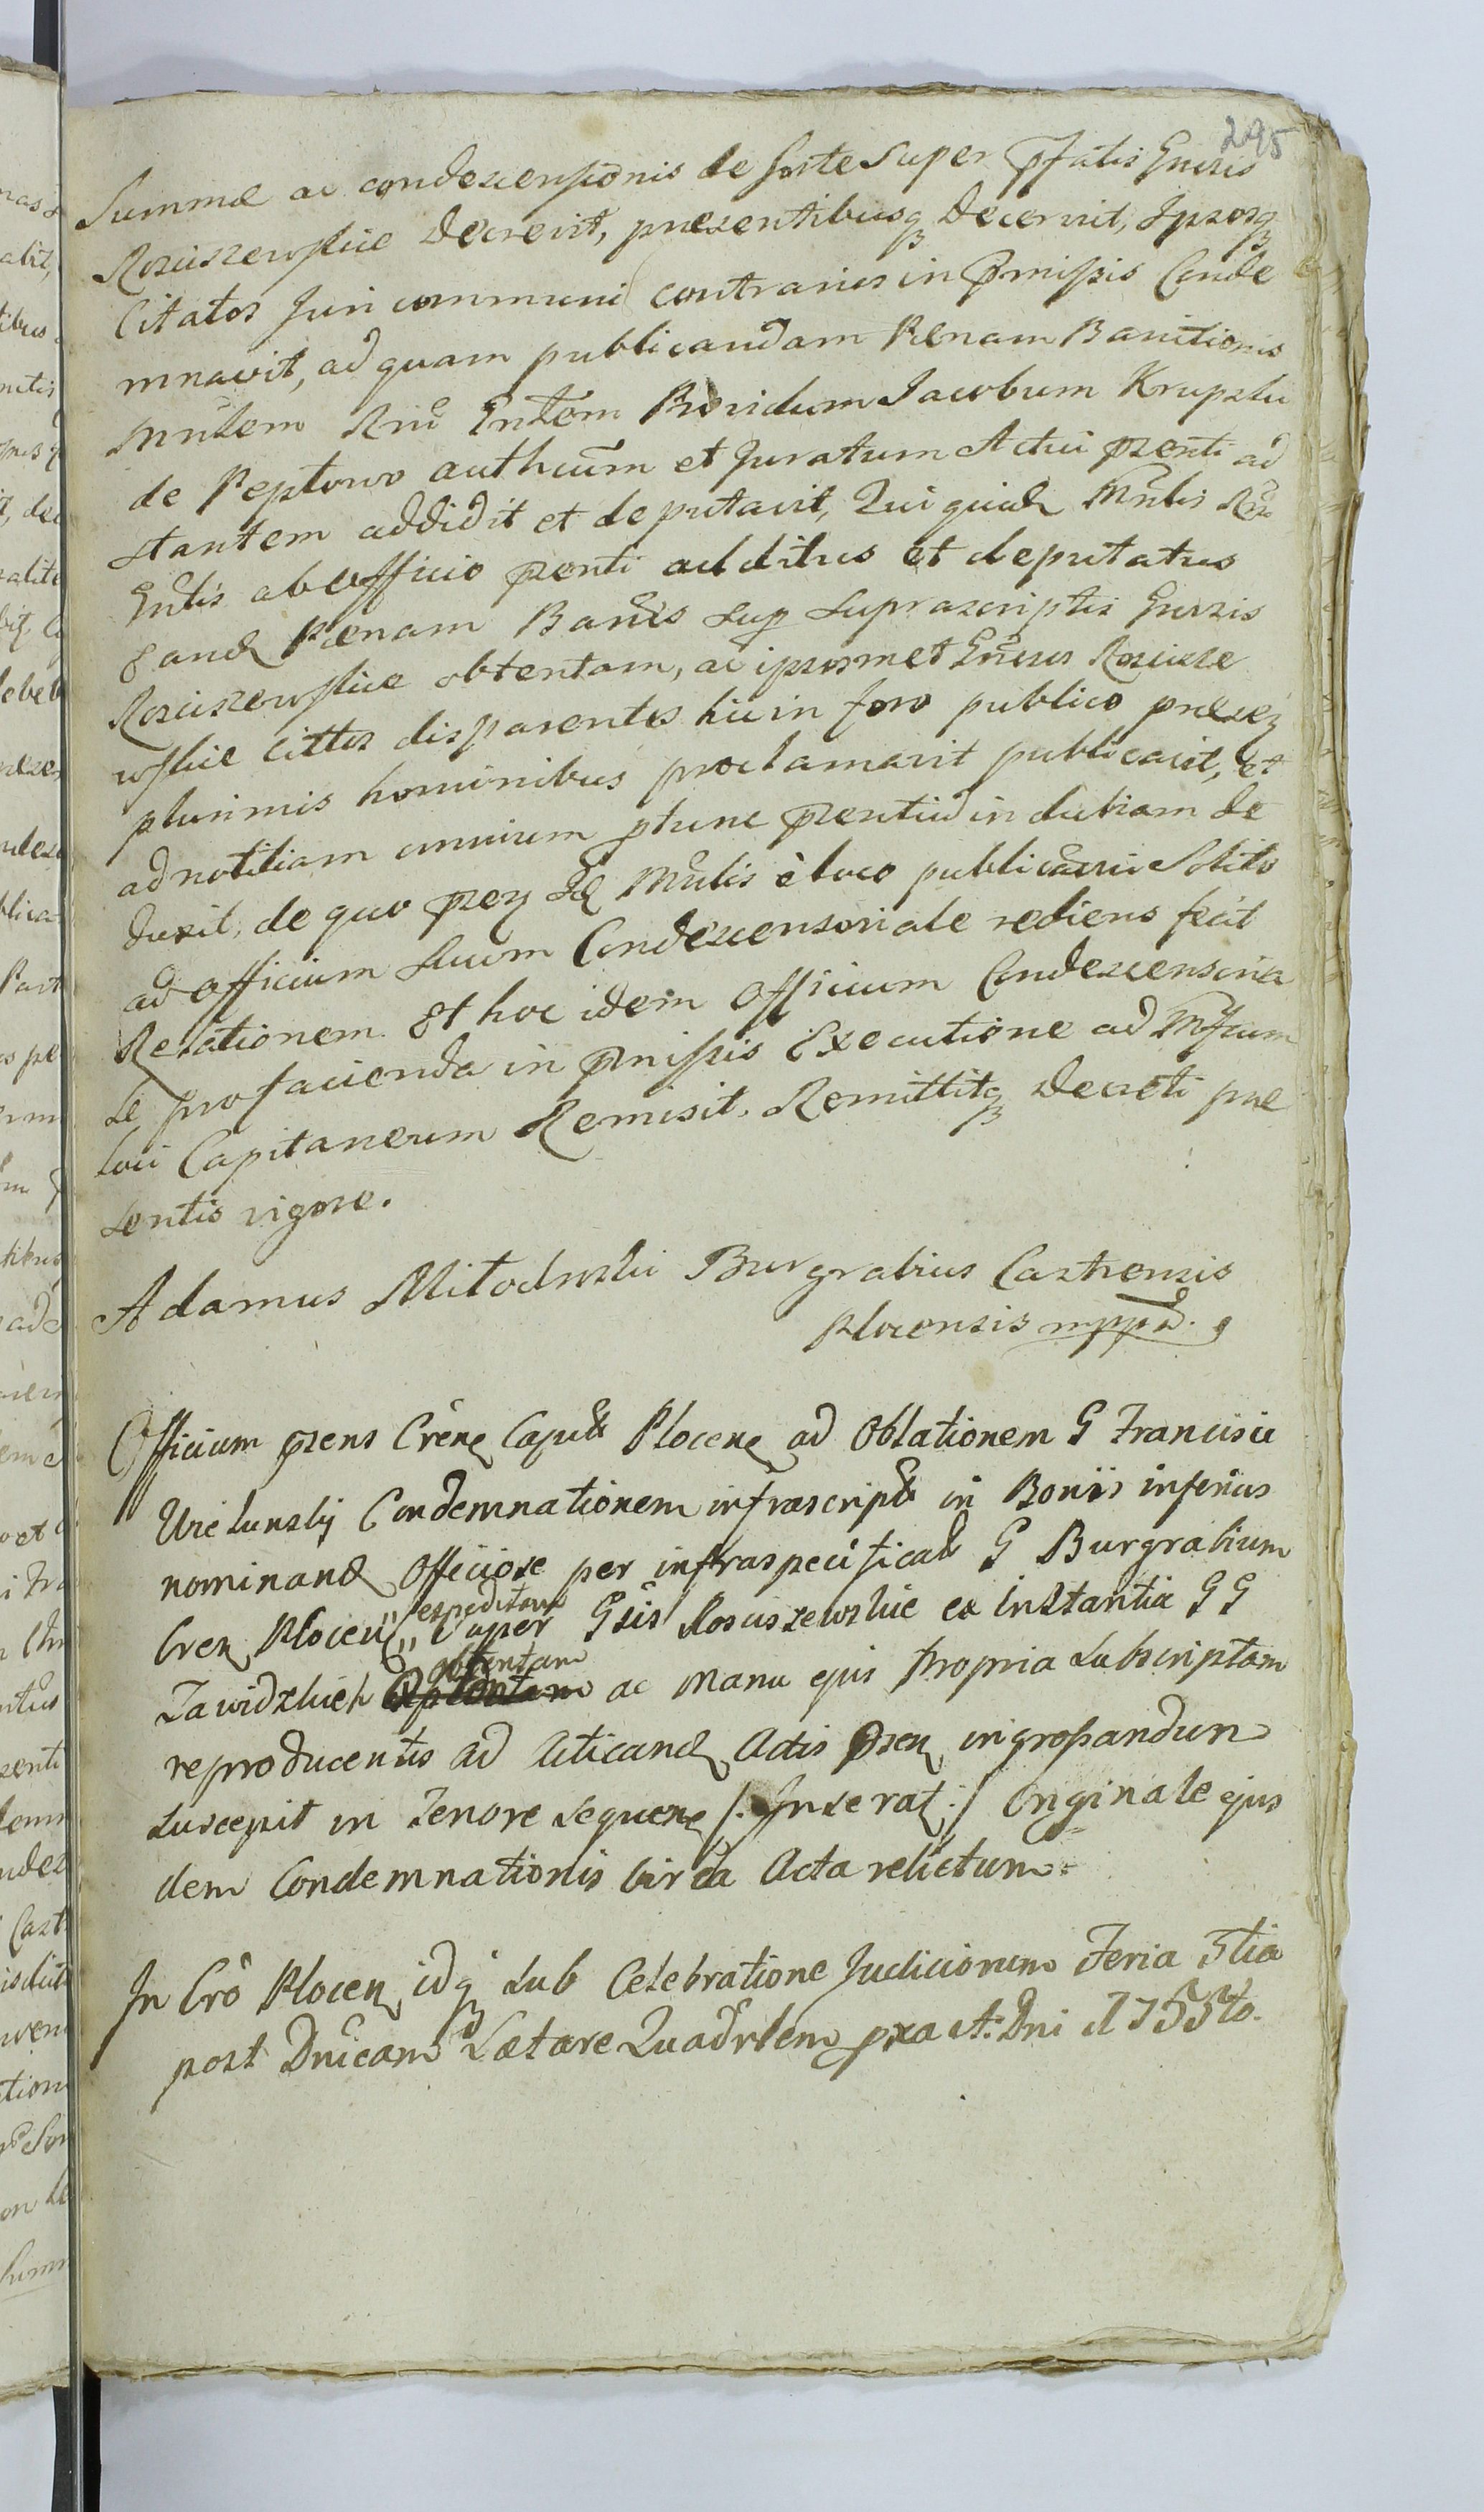 295
Summæ ac condescensionis de sorte super pfatis Gnesis
Rosciszewskie decrevit, præsentibusq decernit, Ipsosq
Citatos Juri communi contrarios in pmissis Conde
mnavit, ad quam publicandam Pænam Banitionis
Mnlem Rni Gnlem Providum Jacobum Krupski
de Peplowo authcum et Juratum Actui pzenti ad
stantem addidit et deputavit, Qui quid Mnlis Rni
Gnlis ab officio pzenti additus et deputatus
eand Pænam Banis sup suprascriptis Gnesis
Rosciszewskie obtentam, ac ipsosmet Gneses Roscisze
wskie cittos disparentes hic in foro publico præsez
plurimis hominibus proclamavit publicavit, et
ad notitiam omnium ptunc pzentiu in dubiam de
duxit, de quo pzez Id Mnlis è loco publicarii Solito
ad officium suum Condescensoriale rediens fecit
Relationem Et hoc idem Officium Condescensoria
le pro facienda in pmissis Executione ad Mfcum
loci Capitaneum Remisit, Remittitq decreti præ
sentis vigore.
Adamus Mitodrski Burgrabius Castrensis
Plocensis mppa.
Officium pzens Crene Capit Plocene ad Oblationem G Francisci
Wielunskij Condemnationem infrascript in Boniis inferius
nominand Officiose per infraspecificat G Burgrabium
Cren Plocen expeditam super Gsis Rosciszewskie ex Instantia GG
Zawidzkich obtentam ac manu ejus propria subscriptam
reproducentis ad acticand Actis pzen ingrossandum
suscepit in Tenore sequene /. Inserat :/ Originale ejus
dem Condemnationis circa Acta relictum.
In Cro Plocen idq sub Celebratione Judiciorum Feria 3tia
post Dnicam Lætare Quadrlem pxa A: Dni 1755to.